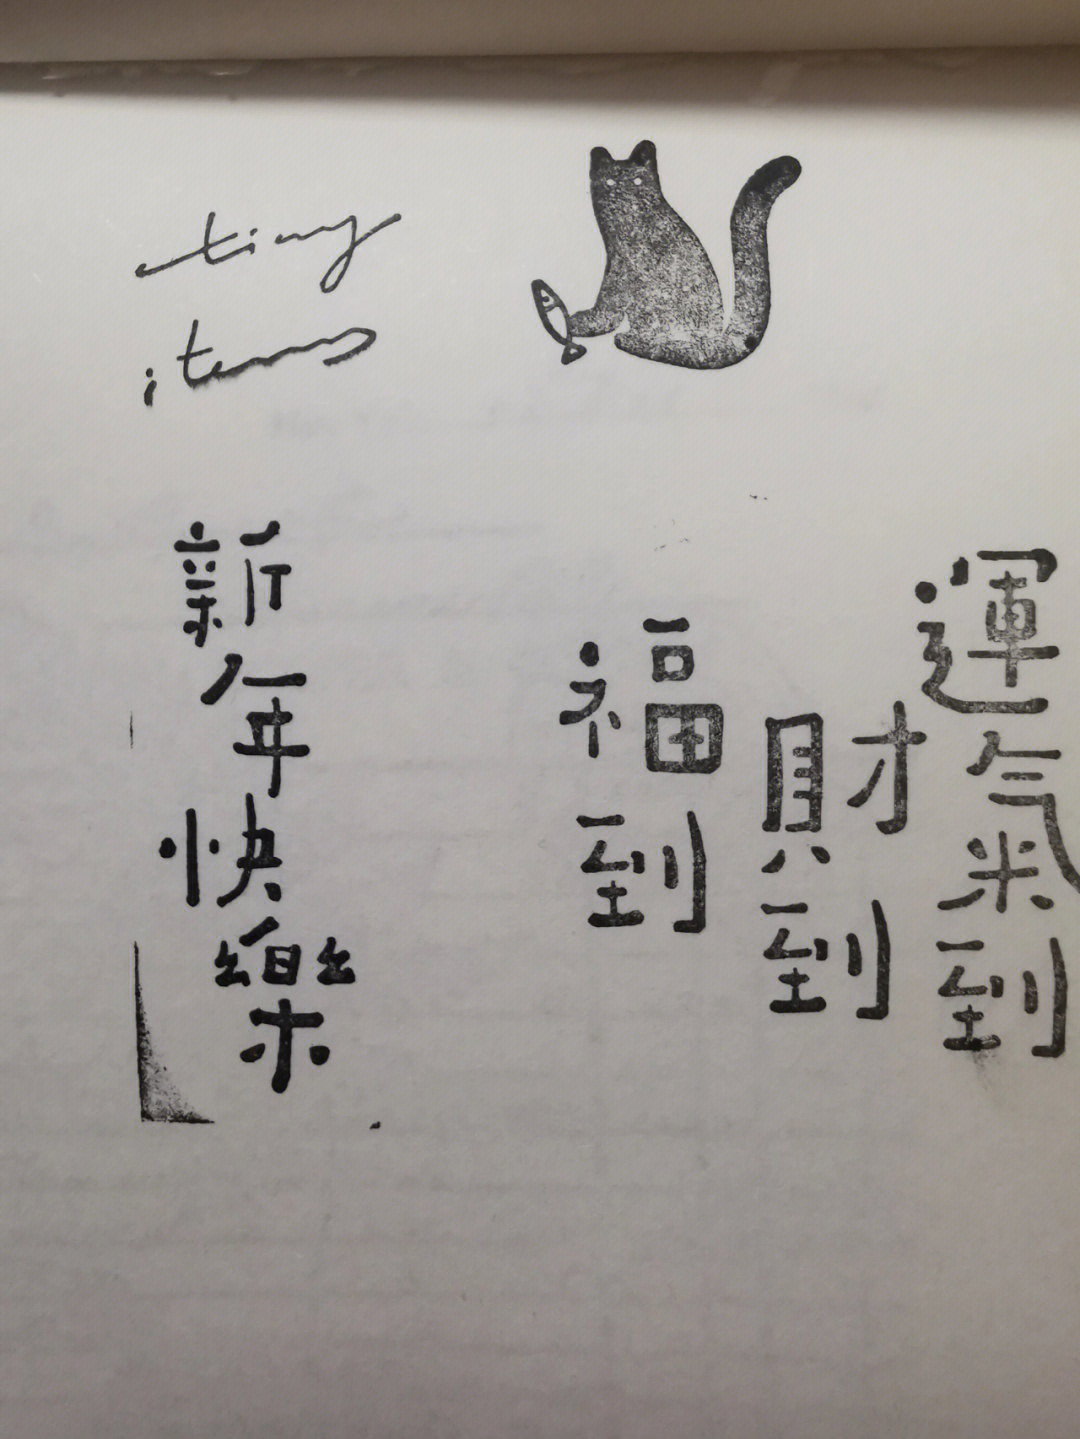 tiny
items
新年快樂
福到
財到
運氣到